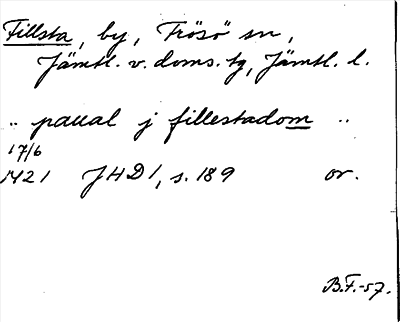 Fillsta, by, Frösö sn,
Jämtl. v. doms. tg, Jämtl. l.
.. paual j fillestadom ..
17/6
1421 JHD 1, s. 189 or.
B.F.-57.